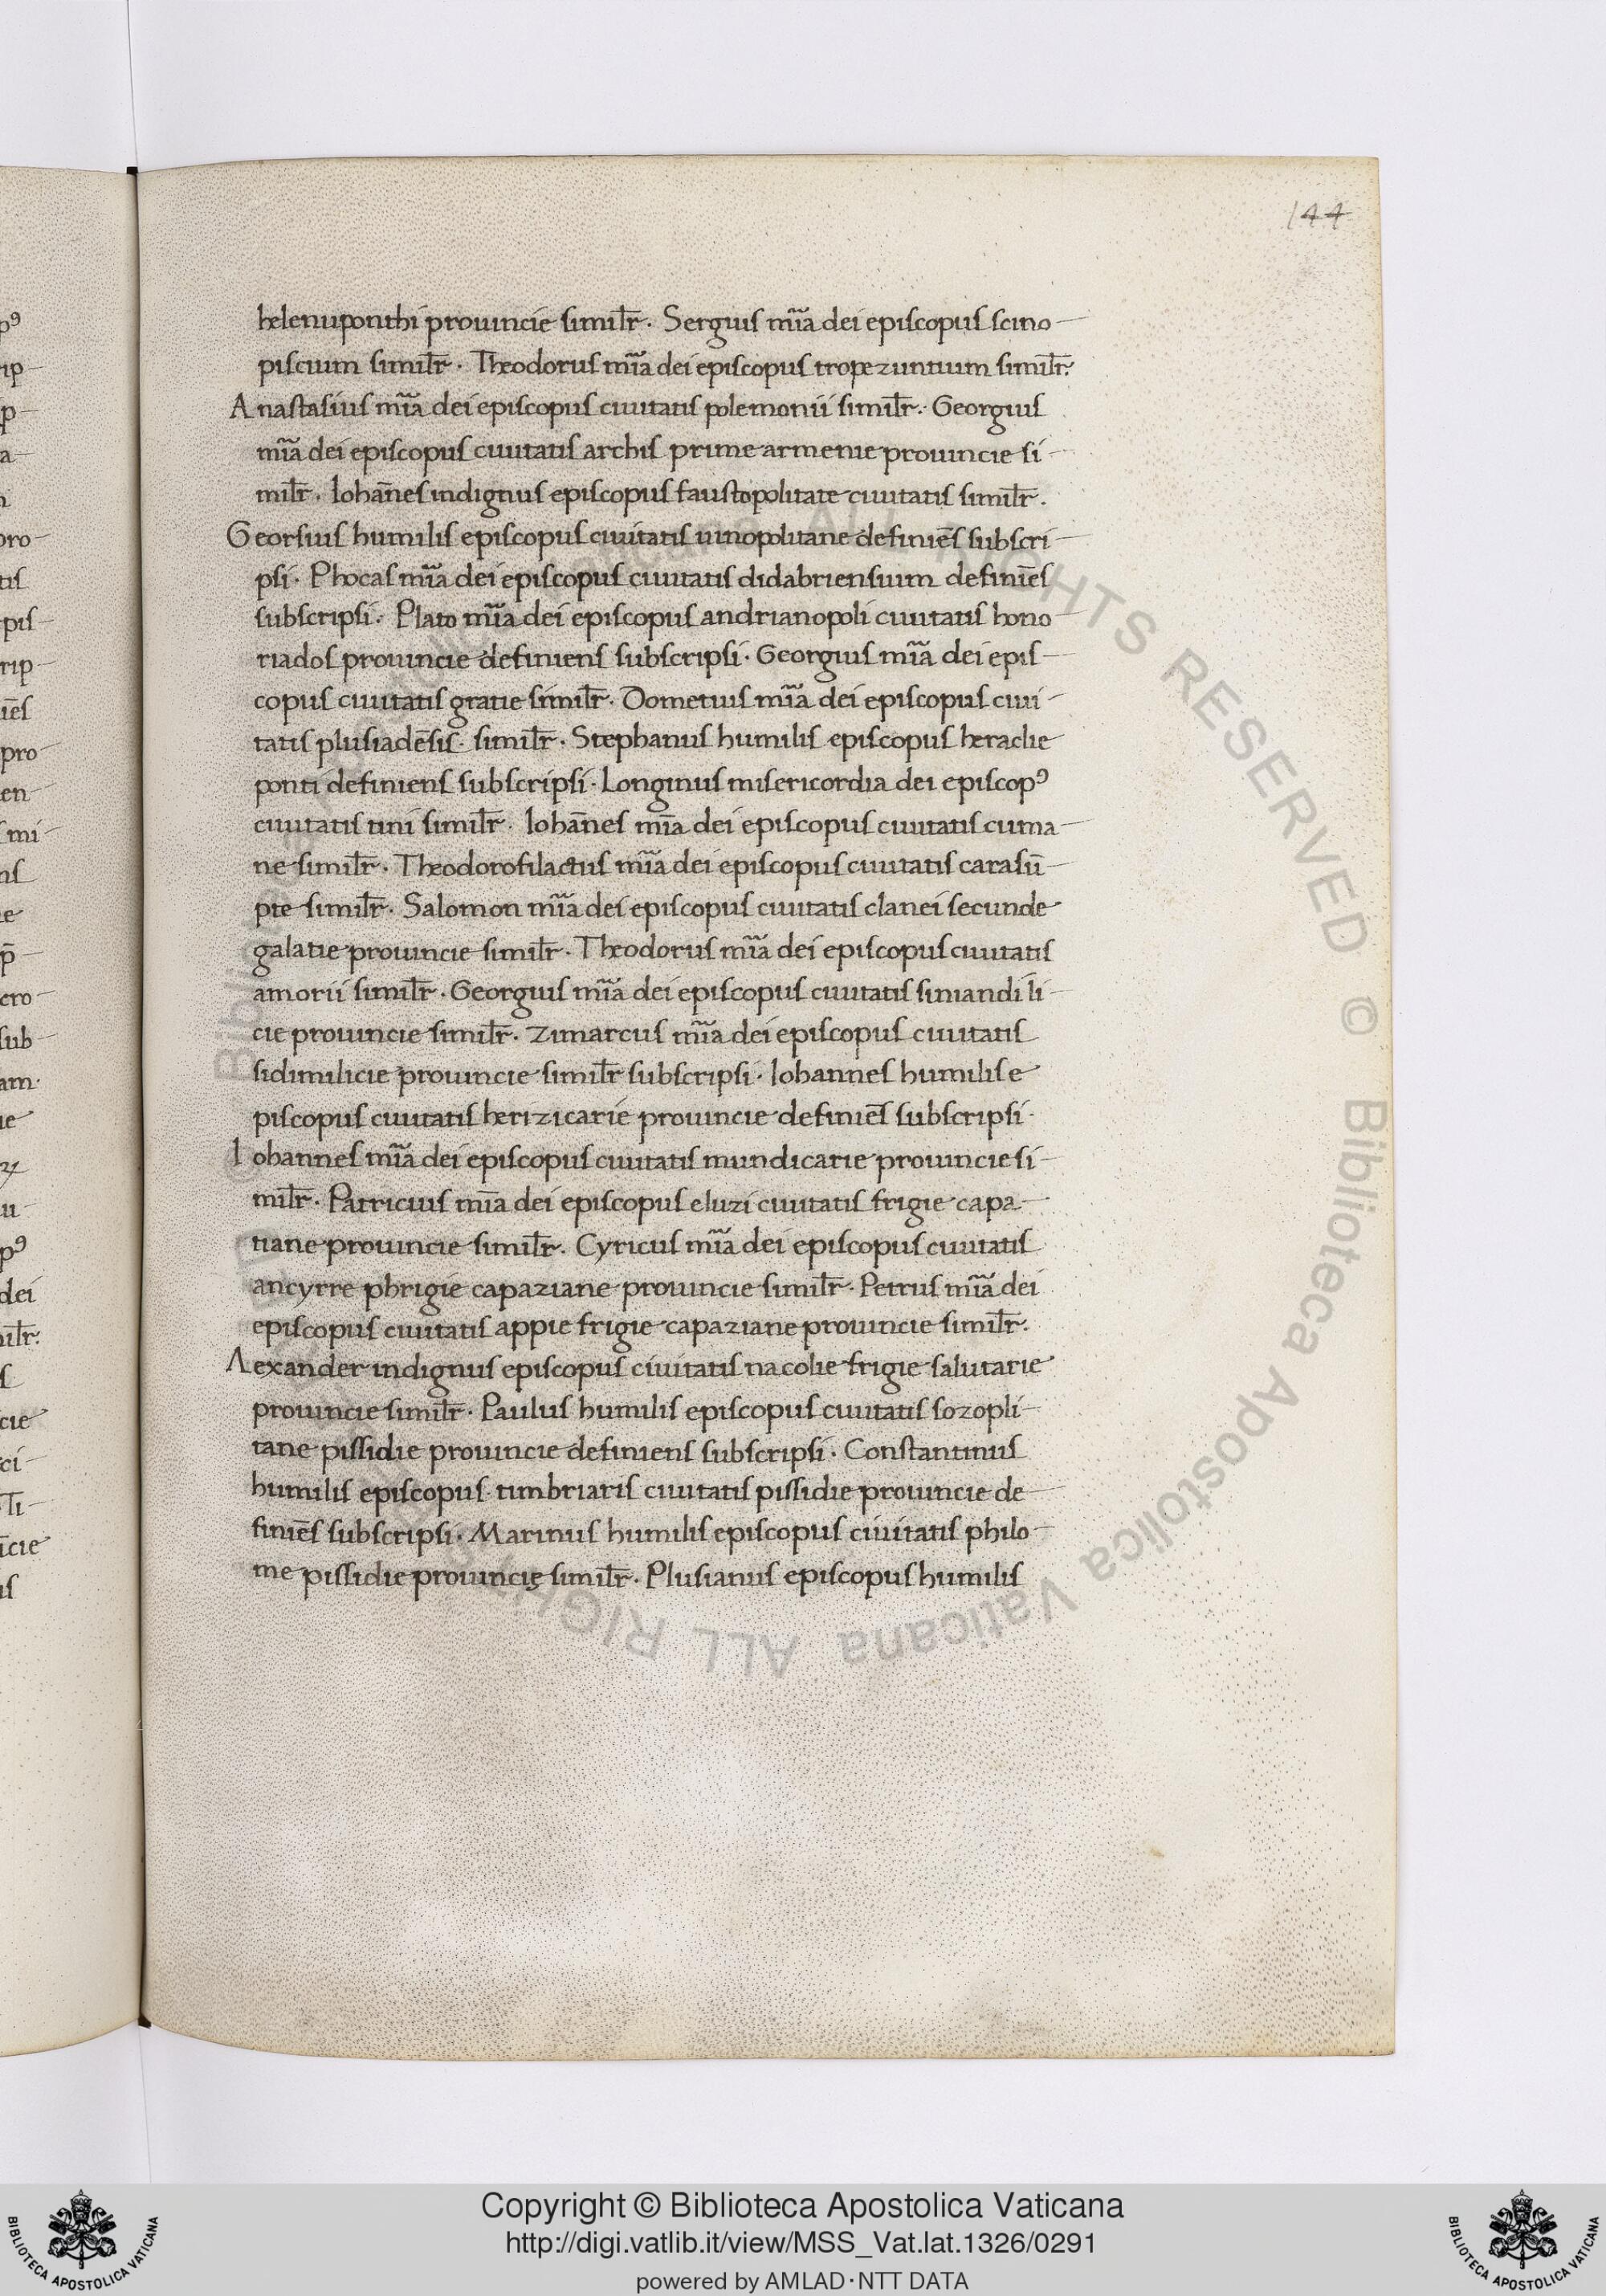 144
helenuponthi prouincie simil̄r. Sergius mīa dei episcopus scino-
piscium simil̄r. Theodorus mīa dei episcopus tropezuntium simil̄r.
Anastasius mīa dei episcopus ciuitatis polemonii simil̄r. Georgius
mīa dei episcopus ciuitatis archis prime armenie prouincie si-
mil̄r. Iohānes indignus episcopus faustopolitate ciuitatis simil̄r.
Georsius humilis episcopus ciuitatis uinopolitane definiēs subscri-
psi. Phocas mīa dei episcopus ciuitatis didabriensium definiēs
subscripsi. Plato mīa dei episcopus andrianopoli ciuitatis hono-
riados prouincie definiens subscripsi. Georgius mīa dei epis-
copus ciuitatis gratie simil̄r. Dometius mīa dei episcopus ciui-
tatis plusiadēsis. simil̄r. Stephanus humilis episcopus heraclie
ponti definiens subscripsi. Longinus misericordia dei episcopꝰ
ciuitatis tini simil̄r. Iohānes mīa dei episcopus ciuitatis cuma-
ne simil̄r. Theodorofilactus mīa dei episcopus ciuitatis carasū-
pte simil̄r. Salomon mīa dei episcopus ciuitatis clanei secunde
galatie prouincie simil̄r. Theodorus mīa dei episcopus ciuitatis
amorii simil̄r. Georgius mīa dei episcopus ciuitatis simandi li-
cie prouincie simil̄r. Zimarcus mīa dei episcopus ciuitatis
sidimilicie prouincie simil̄r subscripsi. Iohannes humilis e
piscopus ciuitatis herizicarie prouincie definiēs subscripsi.
Iohannes mīa dei episcopus ciuitatis mundicarie prouincie si-
mil̄r. Patricius mīa dei episcopus eluzi ciuitatis frigie capa-
tiane prouincie simil̄r. Cyricus mīa dei episcopus ciuitatis
ancyrre phrigie capaziane prouincie simil̄r. Petrus mīa dei
episcopus ciuitatis appie frigie capaziane prouincie simil̄r.
Alexander indignus episcopus ciuitatis nacolie frigie salutarie
prouincie simil̄r. Paulus humilis episcopus ciuitatis sozopli-
tane pissidie prouincie definiens subscripsi. Constantinus
humilis episcopus timbriaris ciuitatis pissidie prouincie de-
finiēs subscripsi. Marinus humilis episcopus ciuitatis philo-
me pissidie prouincię simil̄r. Plusianus episcopus humilis
Copyright © Biblioteca Apostolica Vaticana
http://digi.vatlib.it/view/MSS_Vat.lat.1326/0291
powered by AMLAD·NTT DATA